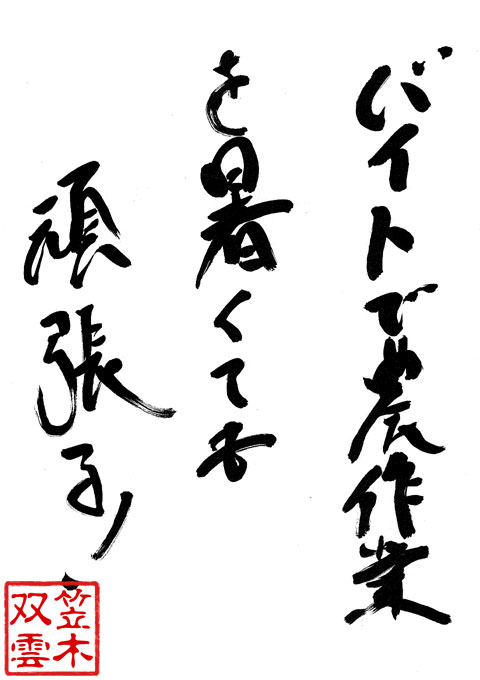 バイトで農作業
を暑くても
頑張る!
笠木
双雲